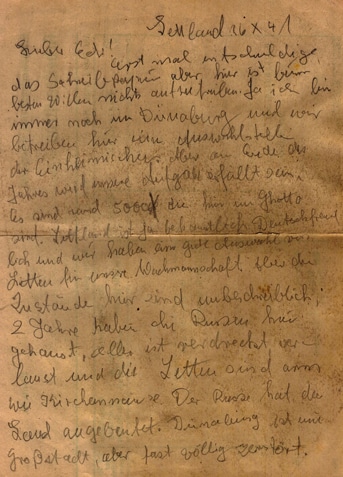 Lettland 16 X 41
Lieber Edi!
Erst mal entschuldige
das Schreibpapier aber hier ist beim
besten Willen nichts aufzutreiben. Ja ich bin
immer noch in Dünaburg und wir
betreiben hier eine
der Einheimischen. Aber am Ende des
Jahres wird unsere Aufgabe erfüllt sein.
Es sind rund die hier im Ghetto
sind. Lettland ist ja bekanntlich Deutschfreund
lich und wir haben eine gute Auswahl von
Letten für unsere Wachmannschaft. Aber die
Zustände hier sind unbeschreiblich;
2 Jahre haben die Russen hier
gehaust, alles ist verdreckt ver
laust und die Letten sind arm
wie Kirchenmäuse Der Russe hat das
Land ausgebeutet. Dünaburg ist eine
Großstadt, aber fast völlig zerstört.